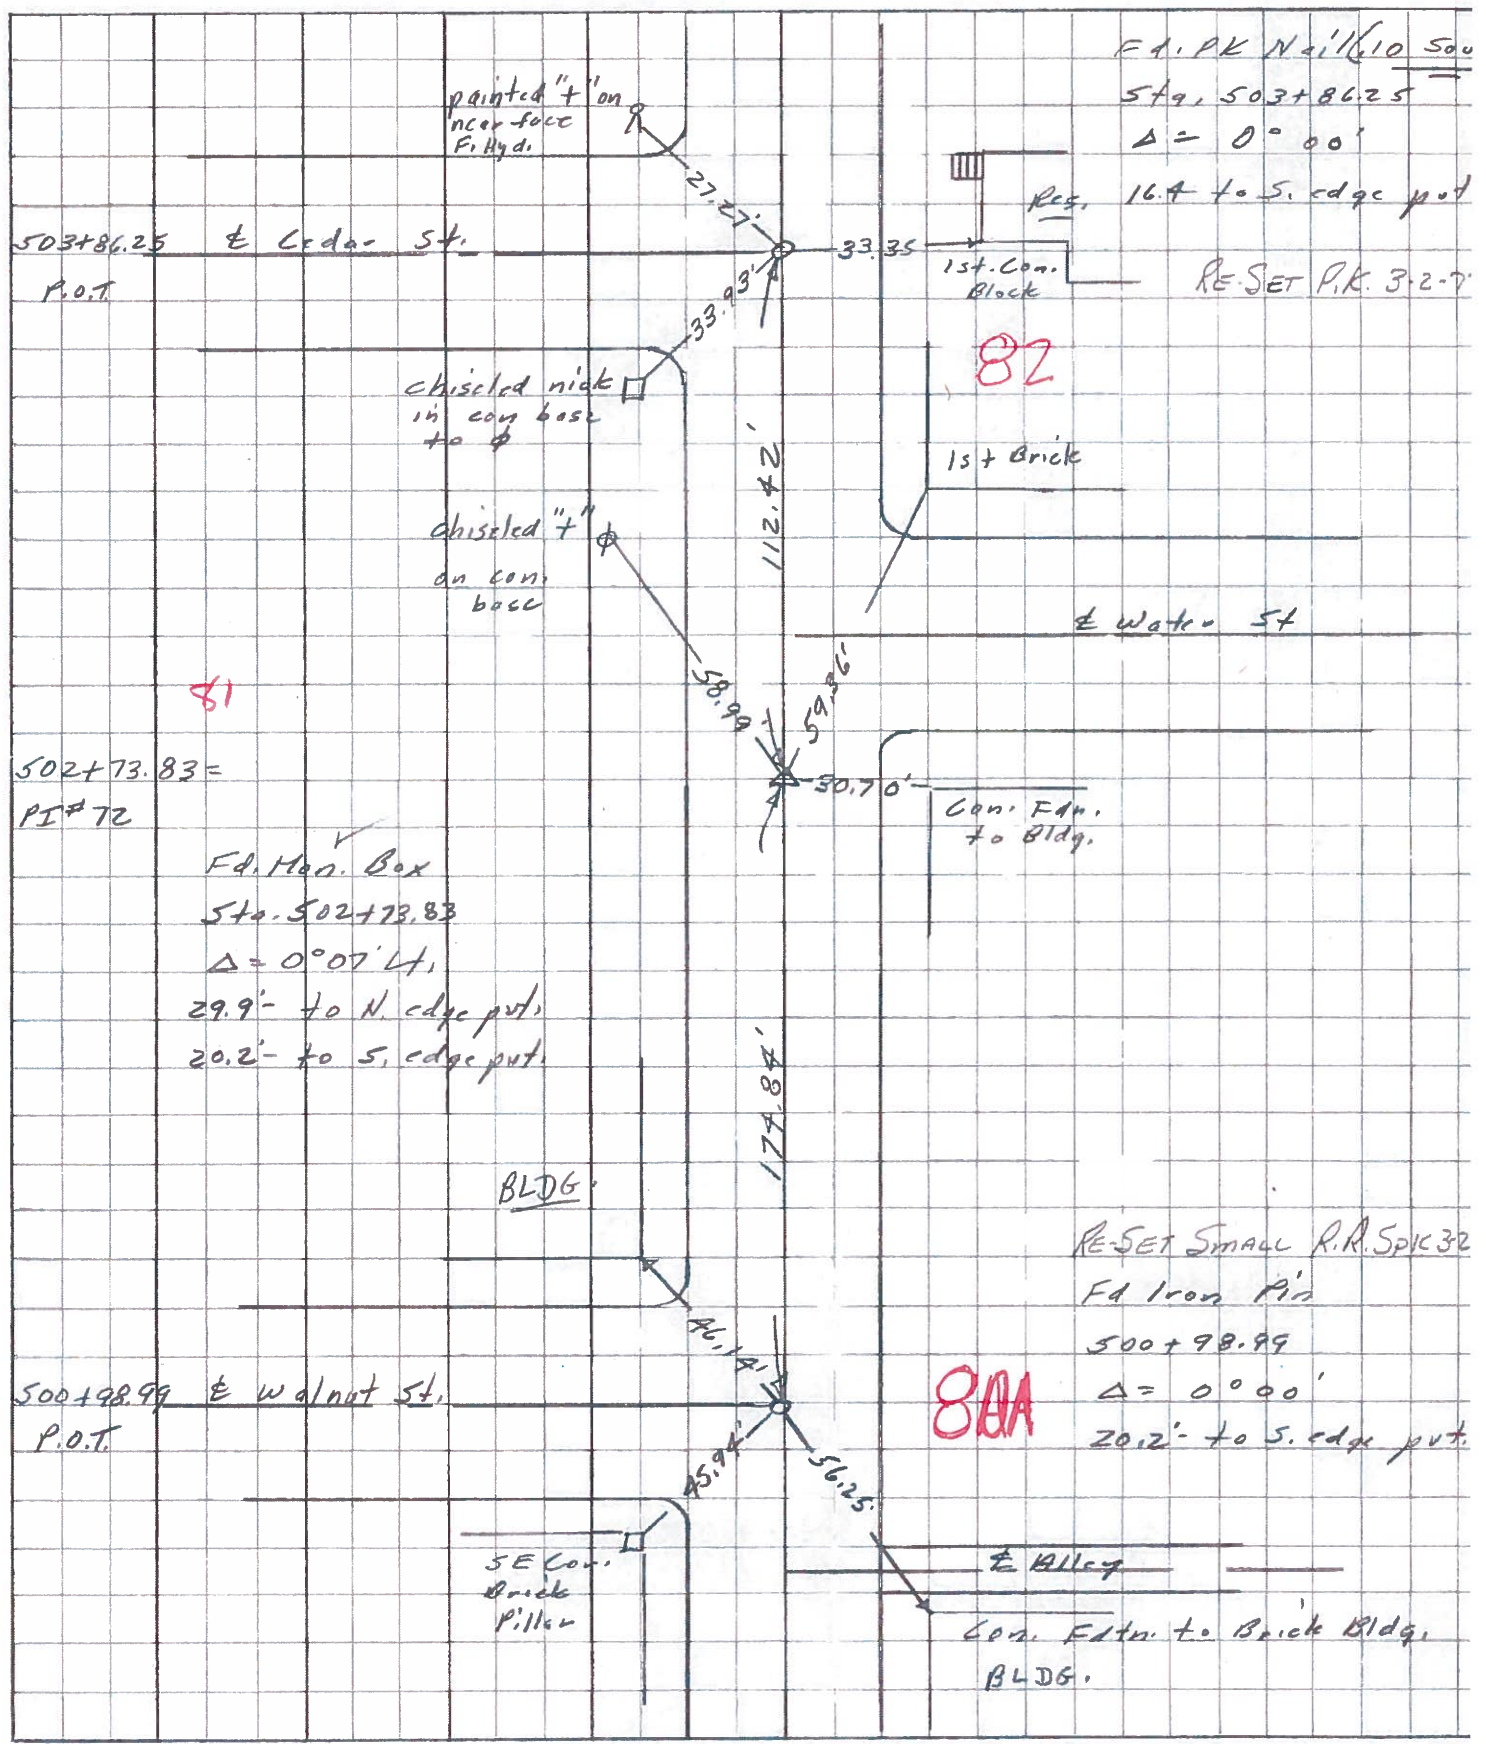 Fd. PK Nail (.10 Sou
Sta. 503+86.25
Δ = 0° 00'
16.4 to S. edge pvt
RE-SET P.K. 3-2-7
painted "+" on
near face
F. Hyd.
27.27'
Res.
503+86.25 ℄ Cedar St.
P.O.T.
33.35
1st. Con.
Block
33.93'
82
chiseled nick
in con base
to ϕ
112.42'
1st Brick
chiseled "+"
on con.
base
℄ Water St
58.99'
59.36'
81
502+73.83=
PI #72
30.70'
Con. Fdn.
to Bldg.
Fd. Mon. Box
Sta. 502+73.83
Δ = 0°07' Lt.
29.9'- to N. edge pvt.
20.2'- to S. edge pvt.
174.84'
BLDG.
RE-SET SMALL R.R. SPK 3-2
Fd Iron Pin
500+98.99
Δ = 0°00'
20.2'- to S. edge pvt.
46.14'
500+98.99 ℄ Walnut St.
P.O.T.
80A
45.94'
56.25'
SE Cor.
Brick
Pillar
℄ Alley
Con. Fdtn. to Brick Bldg.
BLDG.